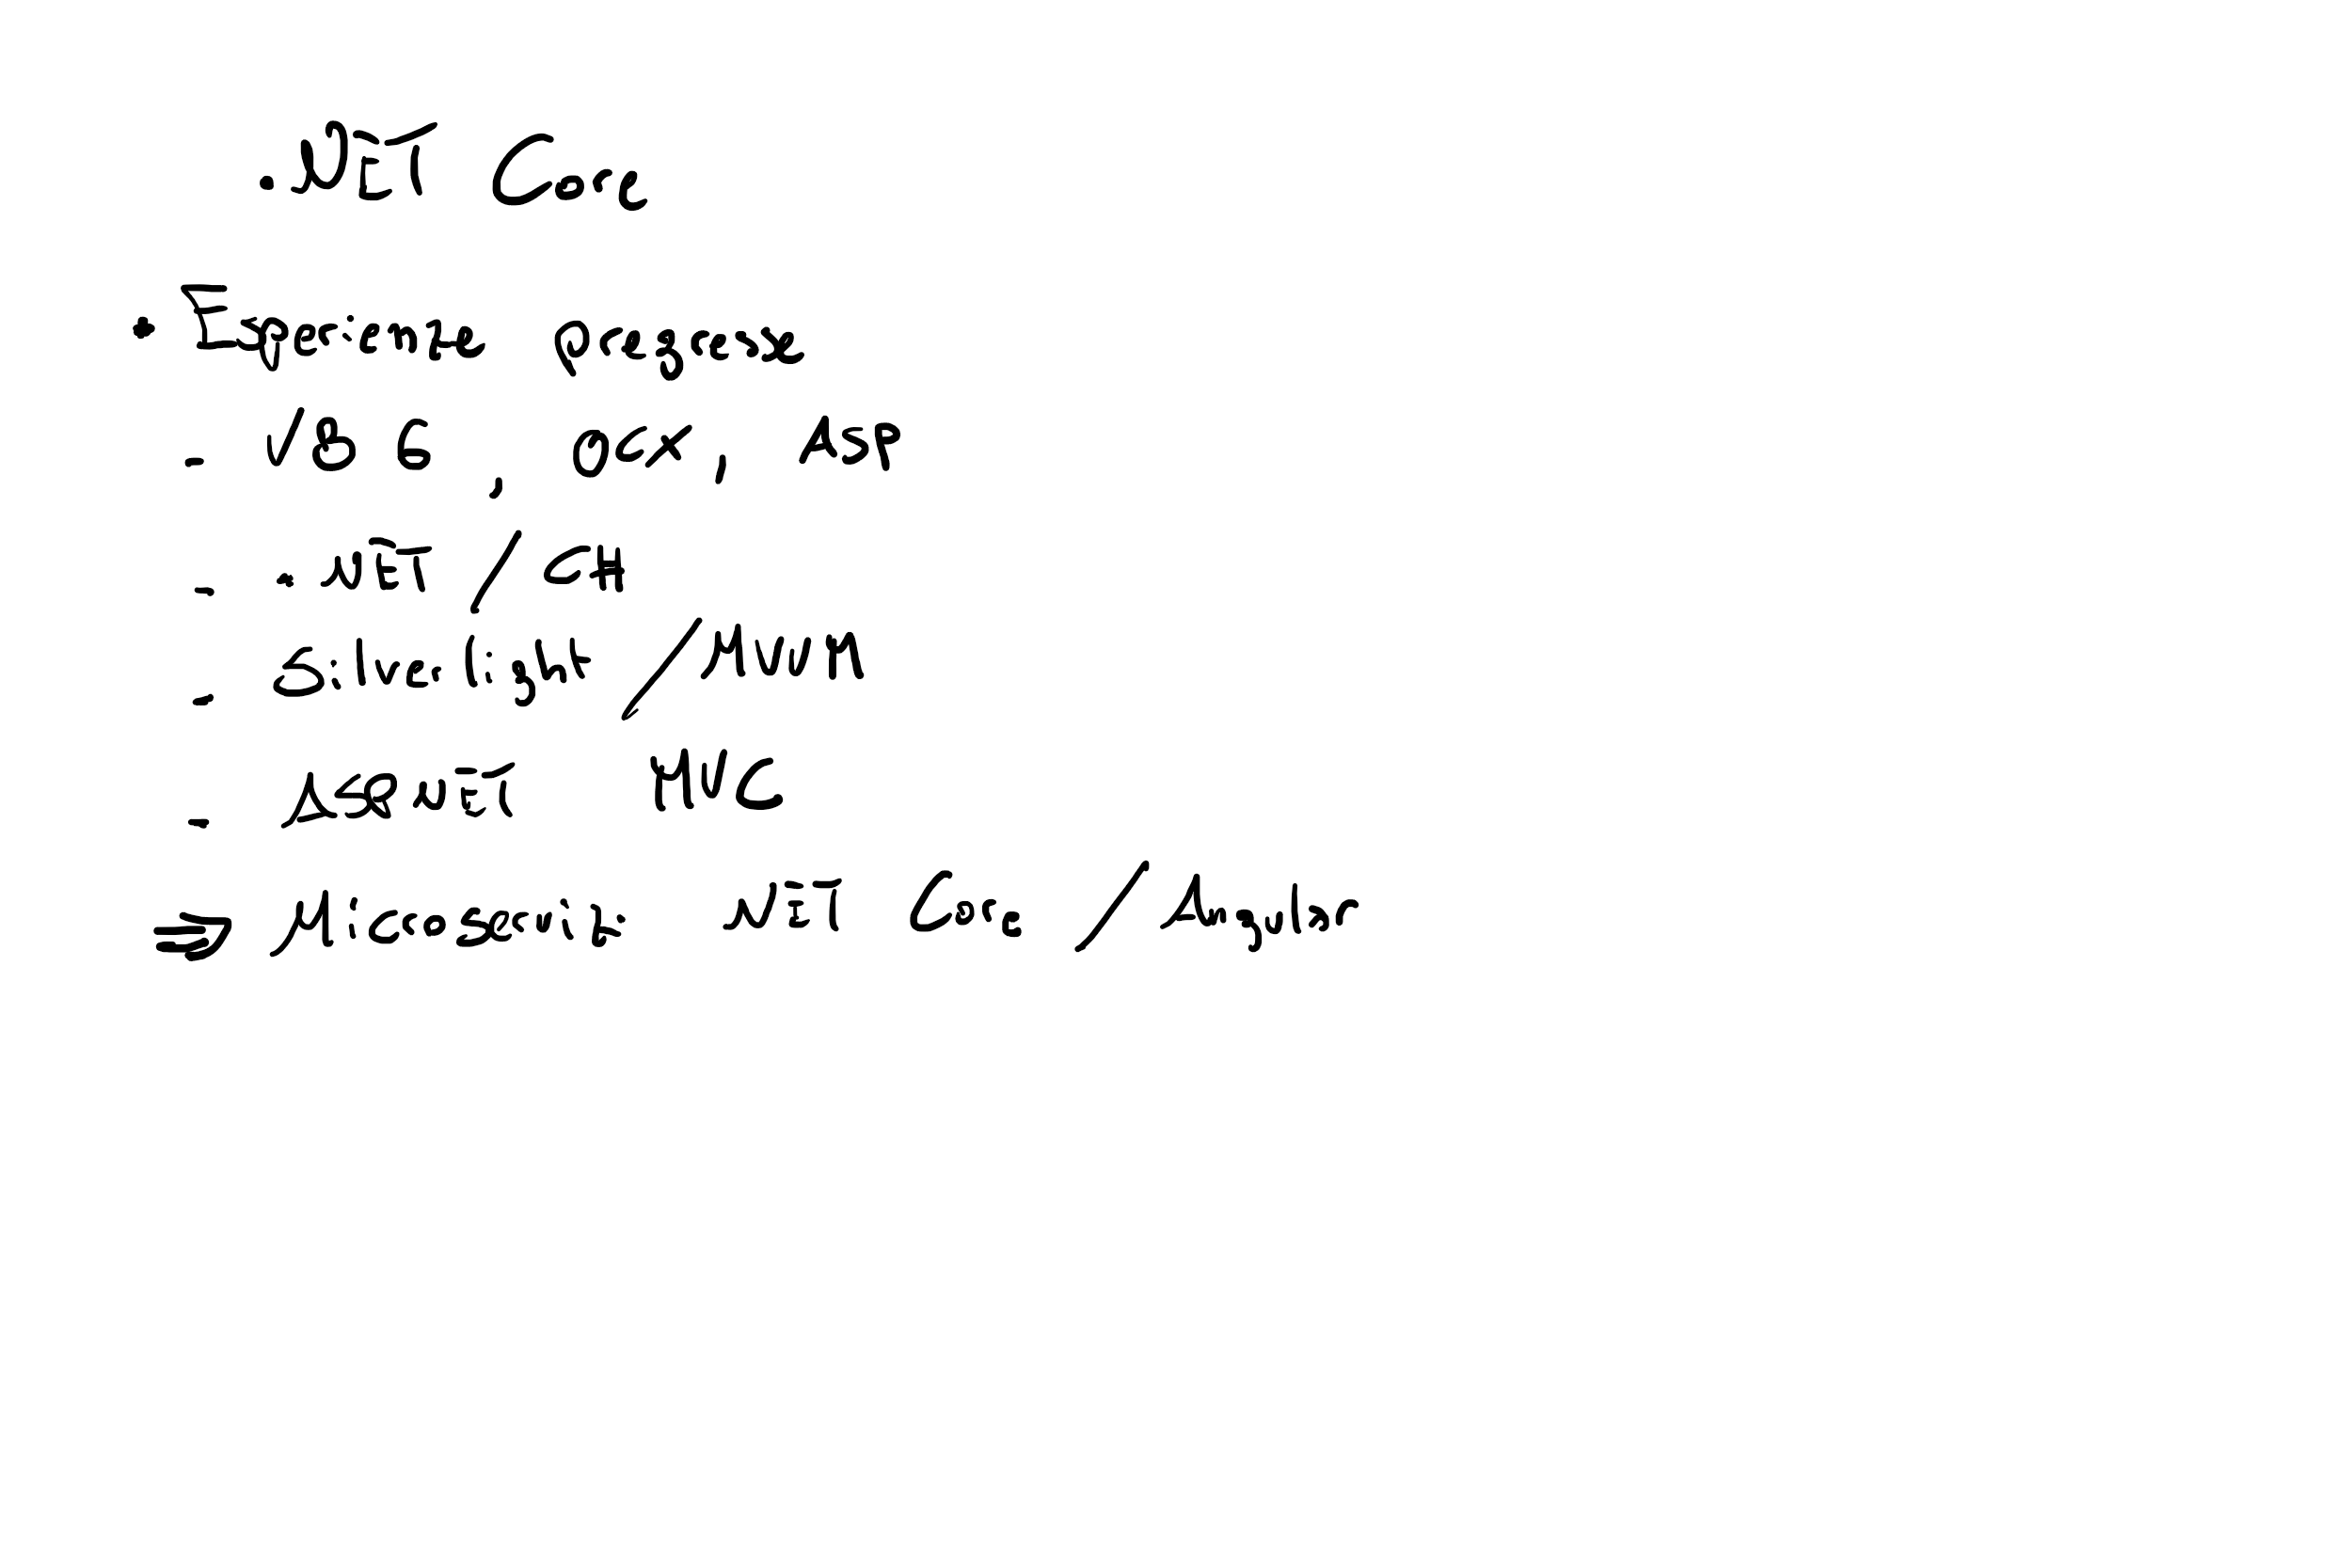 .NET Core
• Esperienze pregresse
- VB 6, OCX, ASP
- .NET / C#
- Silverlight / MVVM
- ASP NET MVC
=> Microservizi NET Core / Angular